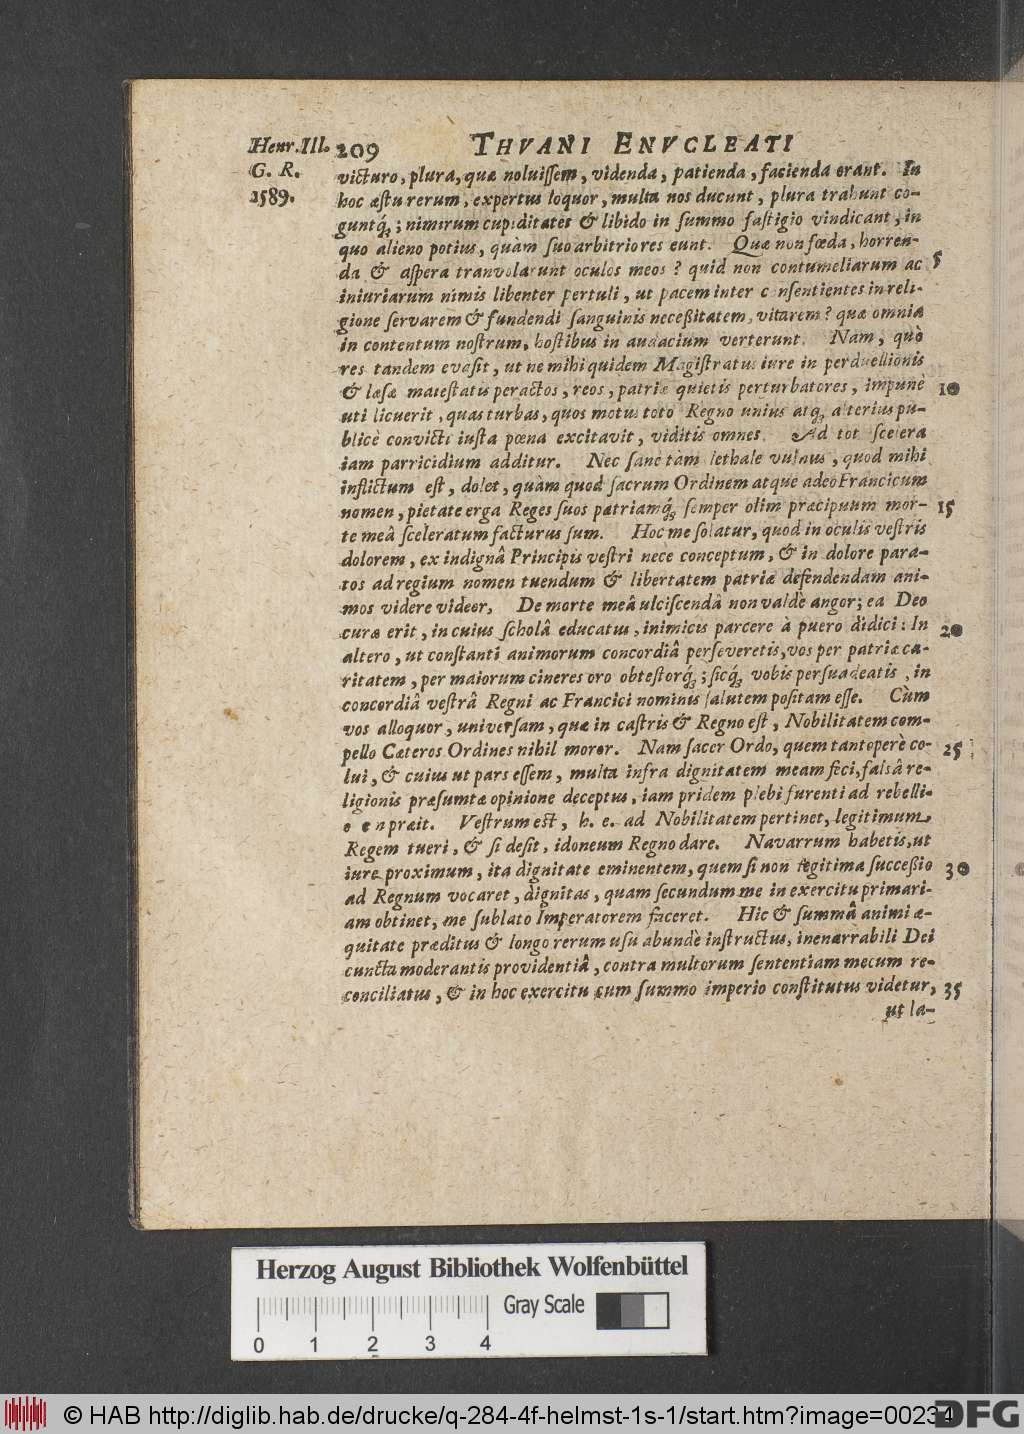 Henr. III. 209 THVANI ENVCLEATI
G. R.
1589.
victuro, plura, quæ noluiſſem, videnda, patienda, facienda erant. In
hoc æſtu rerum, expertus loquor, multa nos ducunt, plura trahunt co-
guntq́; ; nimirum cupiditates & libido in ſummo faſtigio vindicant, in
quo alieno potius, quàm ſuo arbitrio res eunt. Quæ non fœda, horren-
da & aſpera tranvolarunt oculos meos ? quid non contumeliarum ac 5
iniuriarum nimis libenter pertuli, ut pacem inter conſentientes in reli-
gione ſervarem & fundendi ſanguinis neceßitatem, vitarem ? quæ omnia
in contentum noſtrum, hoſtibus in audacium verterunt. Nam, quò
res tandem evaſit, ut ne mihi quidem Magiſtratus iure in perduellionis
& læſæ maieſtatis peractos, reos, patriæ quietis perturbatores, impunè 10
uti licuerit, quas turbas, quos motus toto Regno unius atq; alterius pu-
blicè convicti iuſta pœna excitavit, viditis omnes. Ad tot ſcelera
iam parricidium additur. Nec ſanè tàm lethale vulnus, quod mihi
inflictum eſt, dolet, quàm quod ſacrum Ordinem atque adeo Francicum
nomen, pietate erga Reges ſuos patriamq́; ſemper olim præcipuum mor- 15
te meâ ſceleratum facturus ſum. Hoc me ſolatur, quod in oculis veſtris
dolorem, ex indignâ Principis veſtri nece conceptum, & in dolore para-
tos ad regium nomen tuendum & libertatem patriæ defendendam ani-
mos videre videor, De morte meâ ulciſcendâ non valdè angor; ea Deo
curæ erit, in cuius ſcholâ educatus, inimicis parcere à puero didici: In 20
altero, ut conſtanti animorum concordiâ perſeveretis, vos per patriæ ca-
ritatem, per maiorum cineres oro obteſtorq́; ; ſicq́; vobis perſuadeatis, in
concordiâ veſtrâ Regni ac Francici nominis ſalutem poſitam eſſe. Cùm
vos alloquor, univerſam, quæ in caſtris & Regno eſt, Nobilitatem com-
pello Cæteros Ordines nihil moror. Nam ſacer Ordo, quem tantoperè co- 25
lui, & cuius ut pars eſſem, multa infra dignitatem meam feci, falsâ re-
ligionis præſumtæ opinione deceptus, iam pridem plebi furenti ad rebelli-
præit. Veſtrum eſt, h. e. ad Nobilitatem pertinet, legitimum
Regem tueri, & ſi deſit, idoneum Regno dare. Navarrum habetis, ut
iure proximum, ita dignitate eminentem, quem ſi non legitima ſucceßio 30
ad Regnum vocaret, dignitas, quam ſecundum me in exercitu primari-
am obtinet, me ſublato Imperatorem faceret. Hic & ſummâ animi æ-
quitate præditus & longo rerum uſu abundè inſtructus, inenarrabili Dei
cuncta moderantis providentiâ, contra multorum ſententiam mecum re-
conciliatus, & in hoc exercitu cum ſummo imperio conſtitutus videtur, 35
ut la-
Herzog August Bibliothek Wolfenbüttel
0 1 2 3 4 Gray Scale
© HAB http://diglib.hab.de/drucke/q-284-4f-helmst-1s-1/start.htm?image=00234
DFG